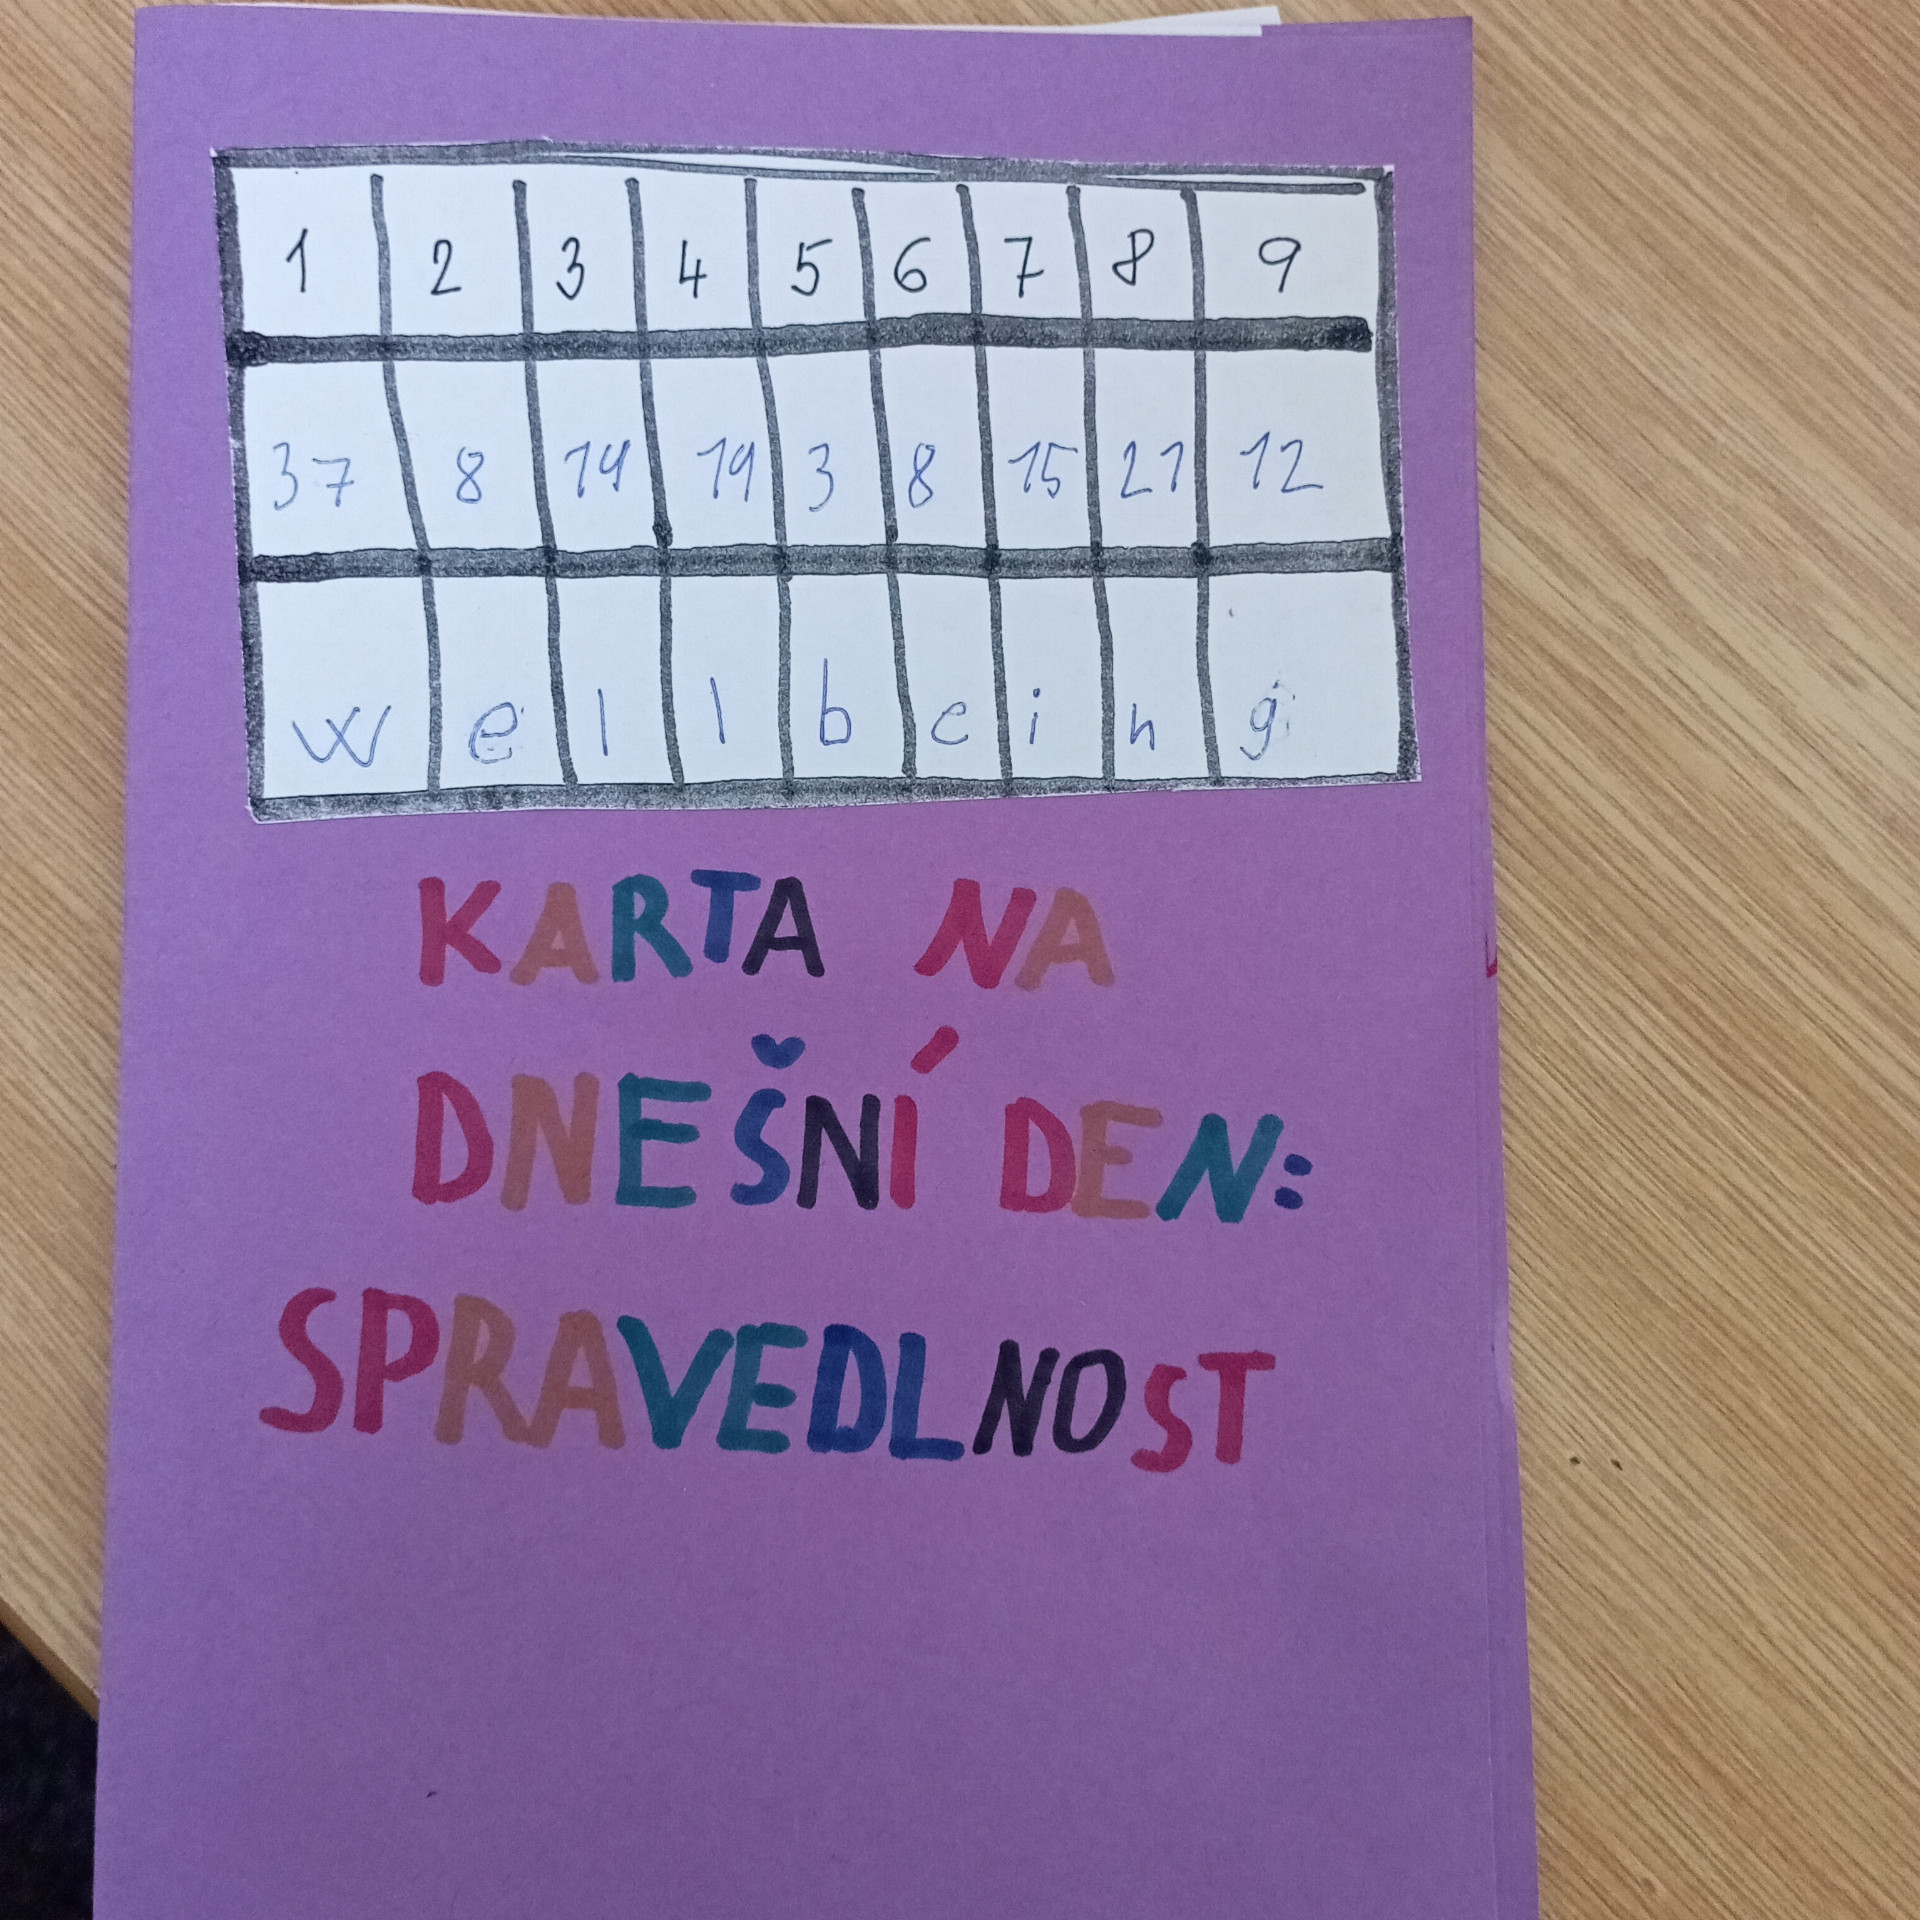 1 2 3 4 5 6 7 8 9
37 8 19 19 3 8 15 21 12
w e l l b e i n g
KARTA NA
DNEŠNÍ DEN:
SPRAVEDLNOST